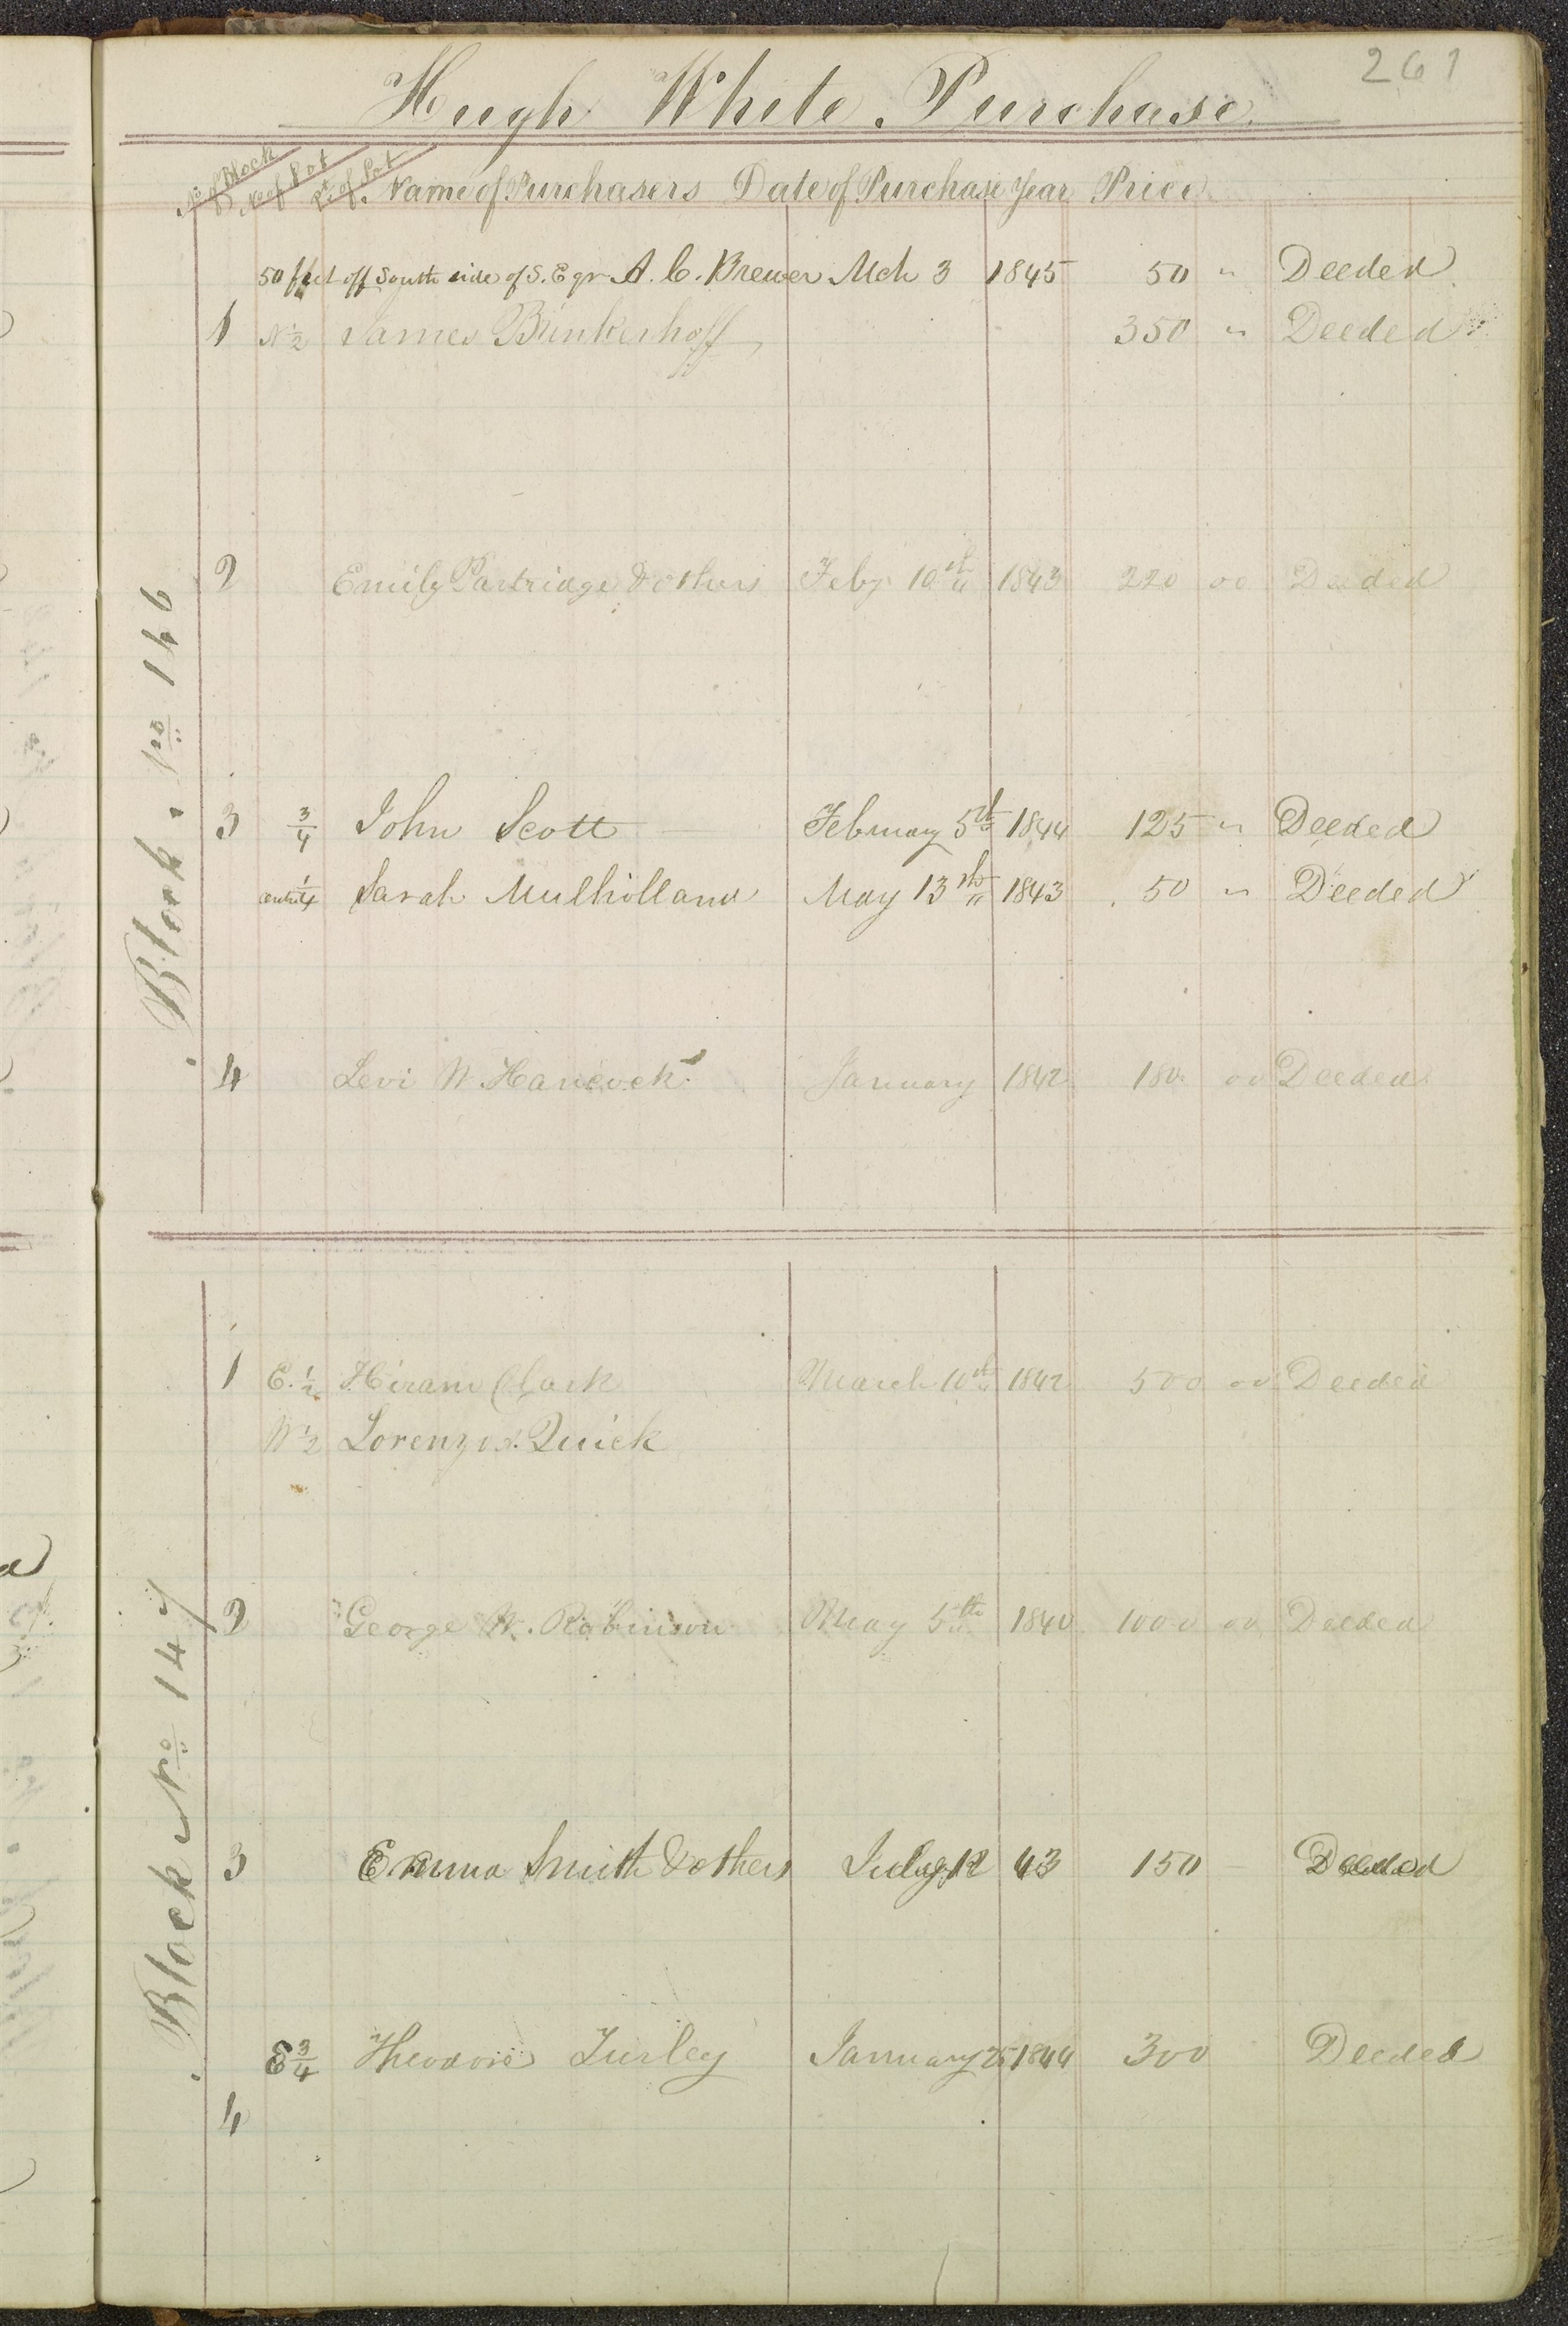 261
Hugh White Purchase.
No of Block No of Lot Pt. of Lot Name of Purchasers Date of Purchase Year Price
Block. No 146
50 feet off South side of S. E qr A. C. Brewer Mch 3 1845 50 " Deeded
1 N 1/2 James Brinkerhoff 350 " Deeded
2 Emily Partridge & others Feby 10th 1843 220 00 Deeded
3 3/4 John Scott February 5th 1844 125 " Deeded
1/4 Sarah Mulholland May 13th 1843 50 " Deeded
4 Levi W. Hancock January 1842 180 00 Deeded
Block No 147
1 E. 1/2 Hiram Clark March 10th 1842 500 00 Deeded
W 1/2 Lorenzo Quick
2 George W. Robinson May 5th 1840 1000 00 Deeded
3 Emma Smith & others July 12 43 150 — Deeded
E 3/4 Theodore Turley January 25 1844 300 Deeded
4